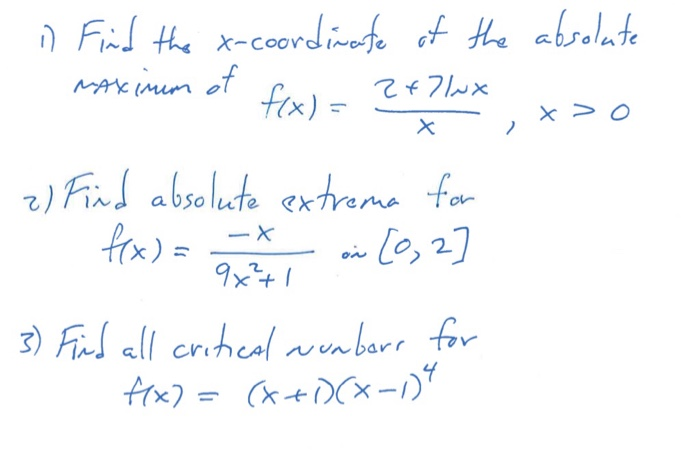 1) Find the x-coordinate of the absolute
maximum of f(x) = (2+7lnx)/x, x > 0
2) Find absolute extrema for
f(x) = -x/(9x²+1) on [0, 2]
3) Find all critical numbers for
f(x) = (x+1)(x-1)⁴